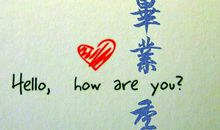 Hello, how are you?
畢業季